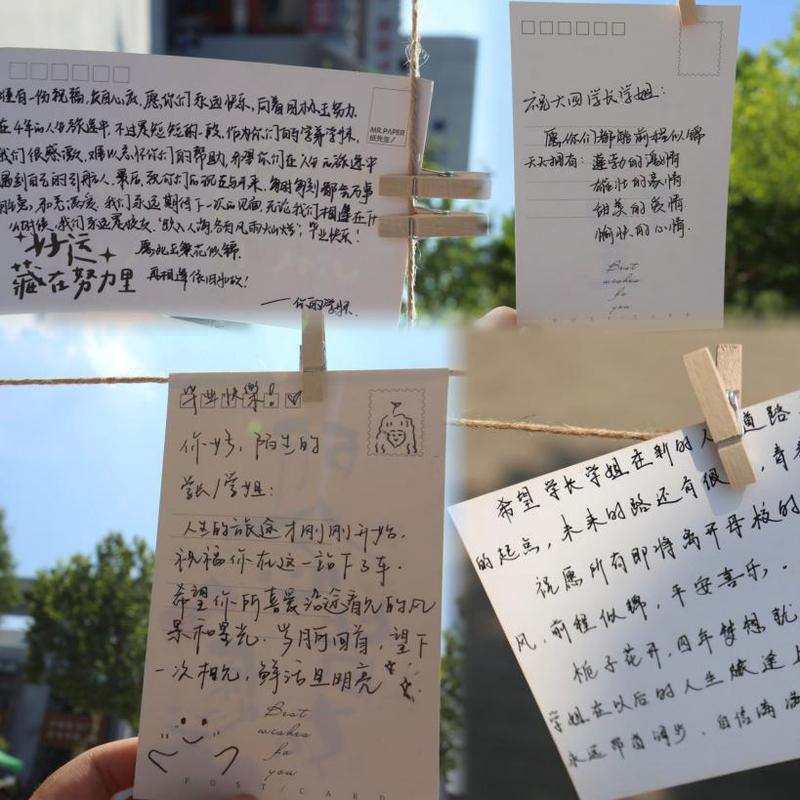 有一份祝福，发自心底，愿你们永远快乐，向着目标去努力。
在4年的人生旅途中，不过是短短的一段，作为你们的学弟学妹，
我们很感激，难以忘怀你们的帮助，希望你们在人生的旅途中
遇到自己的引航人。最后，祝你们后祝在与未来，每时每刻都会万事
如意，和志满成，我们永远期待下一次的见面，无论我们相逢在什
么时候，我们永远是校友。"散入人海，各有风雨灿烂"；毕业快乐！
好运
藏在努力里
愿此去繁花似锦，
再相逢依旧如故！
——你的学妹
MR.PAPER
纸先生
祝大四学长学姐：
愿你们都能前程似锦
天天拥有：蓬勃的激情
雄壮的豪情
甜美的爱情
愉快的心情.
Best
wishes
for
you
POST/CARD
毕业快樂！
你好，陌生的
学长/学姐：
人生的旅途才刚刚开始.
祝福你在这一站下了车.
希望你所喜爱沿途看见的风
景和星光.岁月回首，望下
一次相见，鲜活且明亮
Best
wishes
for
you
POST/CARD
希望学长学姐在新的人 道路
的起点，未来的路还有很 ，青春
祝愿所有即将离开母校的
风，前程似锦，平安喜乐，.
栀子花开，四年梦想就
学姐在以后的人生旅途上
永远昂首阔步，自信满满